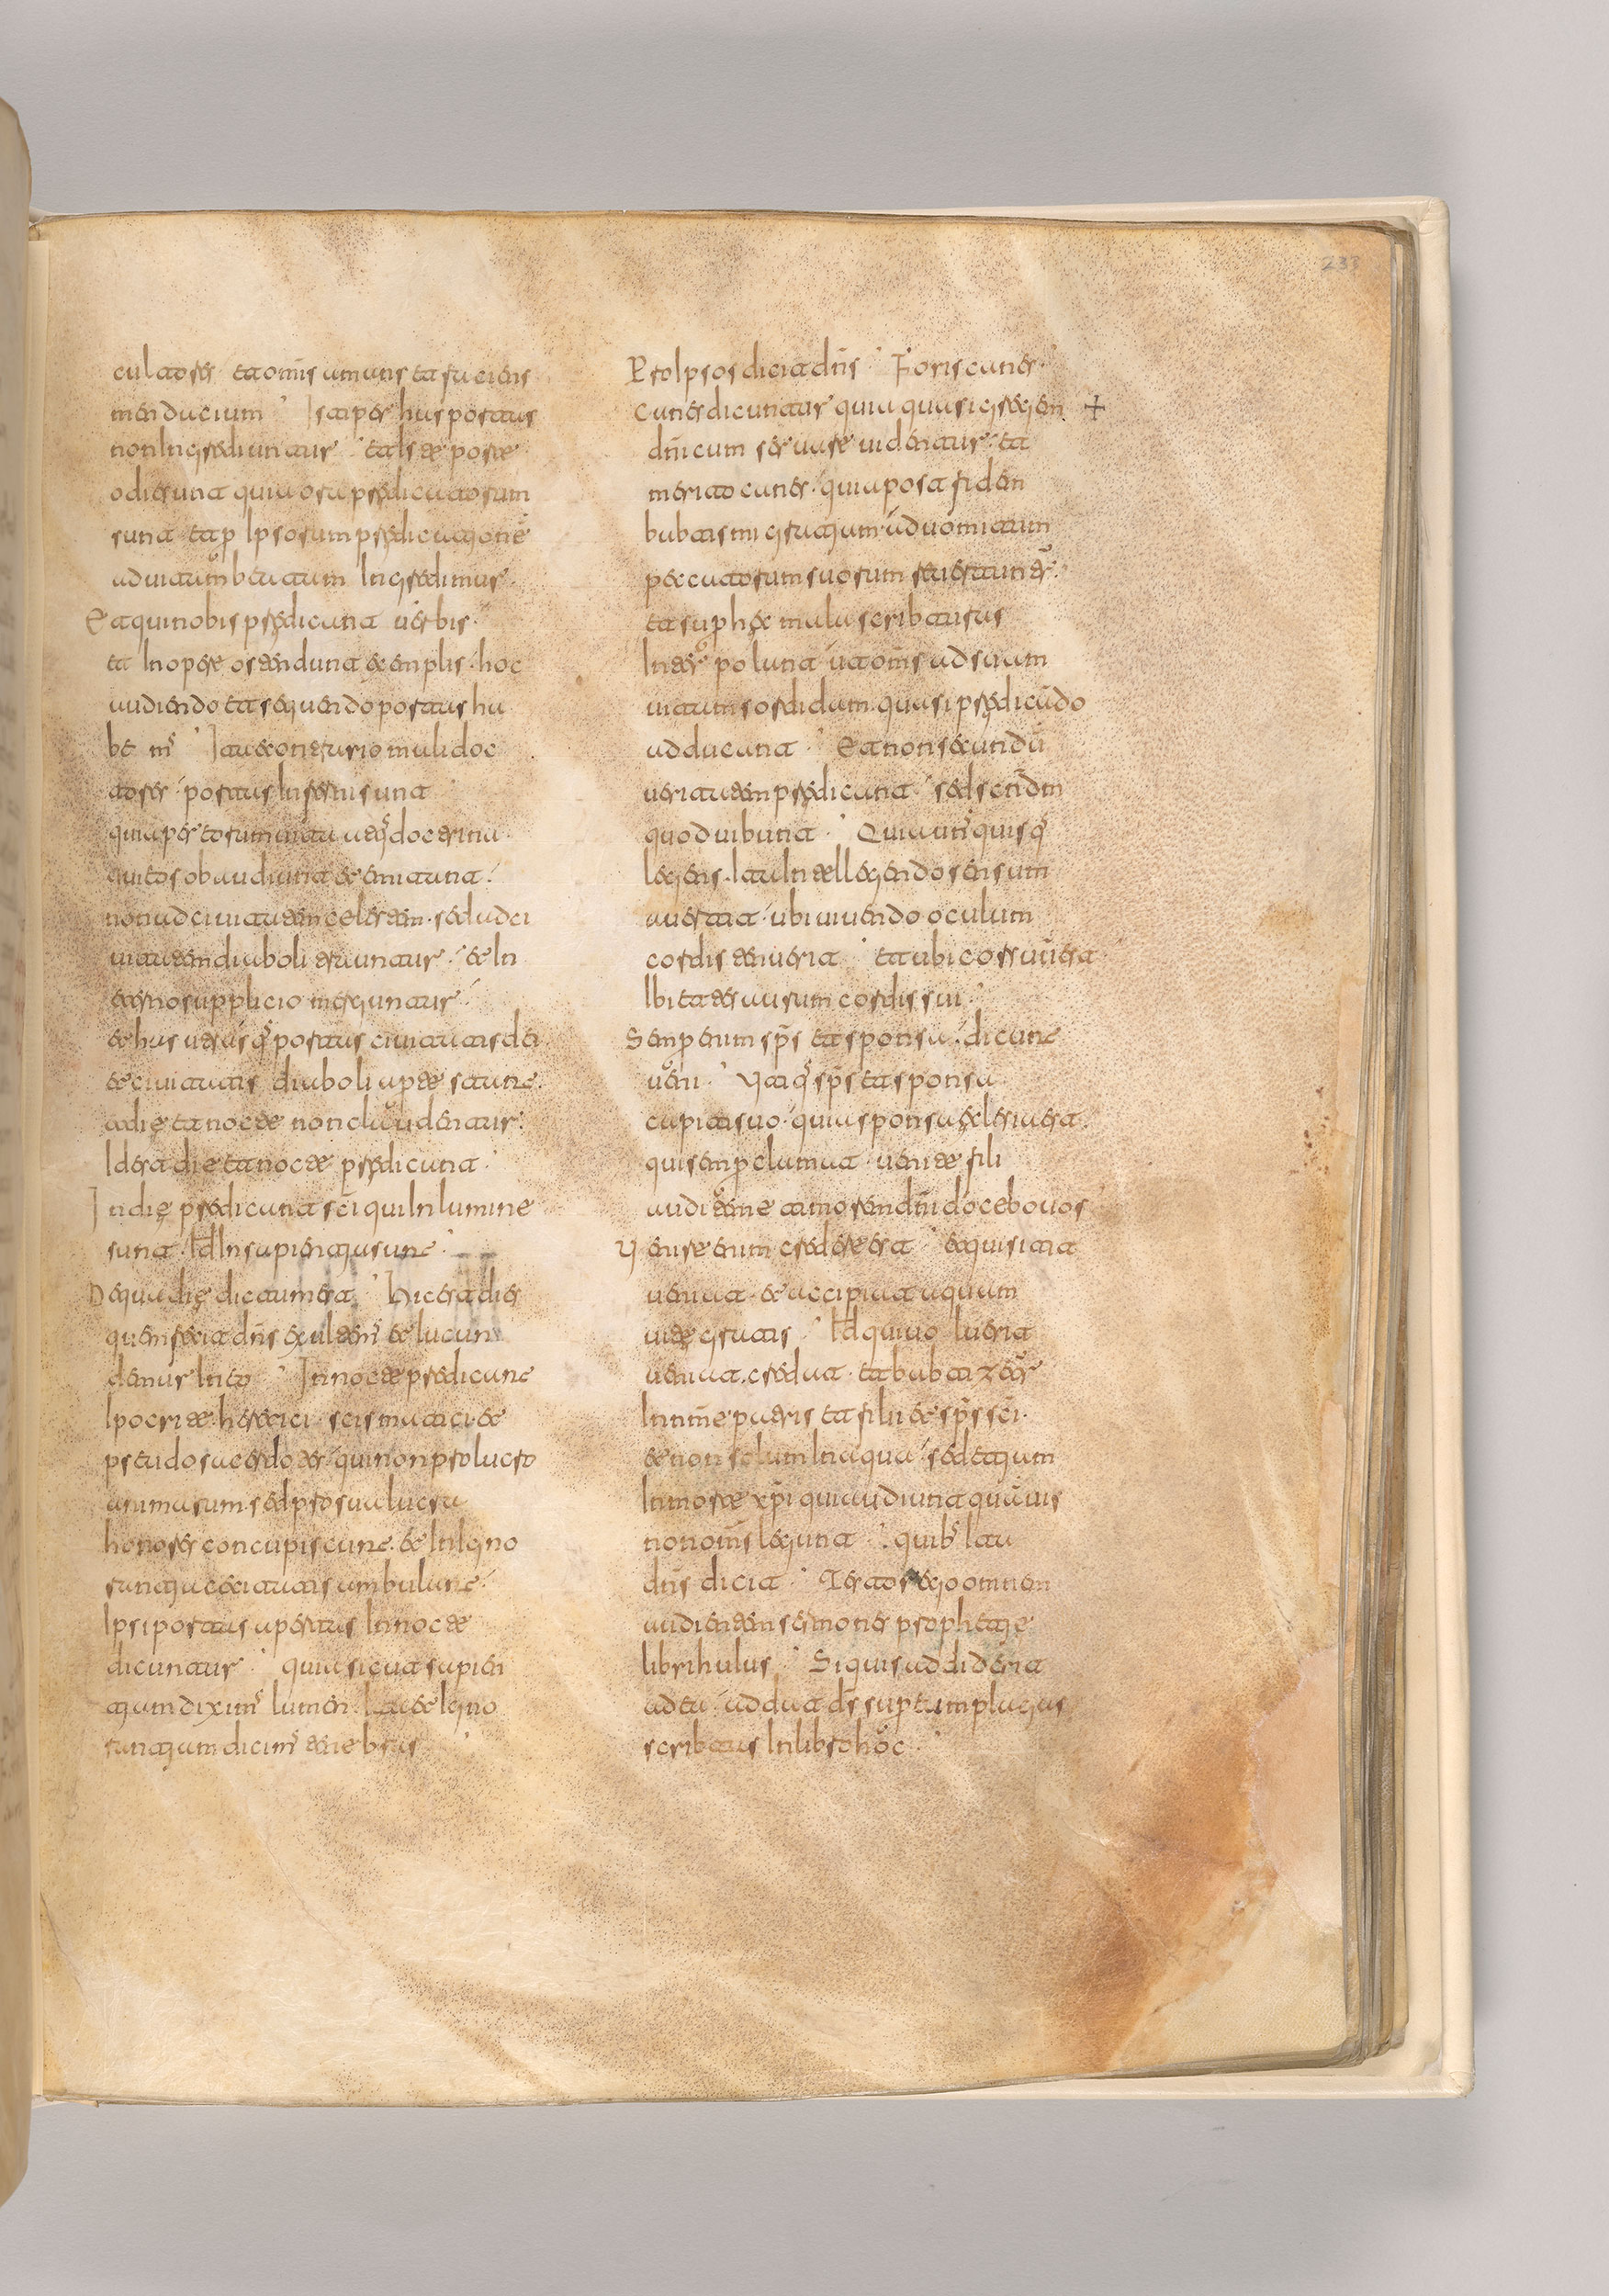 238
cultores et omīs amans et faciens
mendacium Istiper has portas
non ingrediuntur et iste porte
odierunt quia ora predicatorum
sunt et p ipsorum predicationē
ad uitam beatam ingredimur
Et qui nobis predicant uerbis
et in opere ostendunt exemplis hoc
audiendo et sequendo portas ha
bem̄s Ita e contrario mali doc
tores portas inferni sunt
quia per eorum uita atq̄ doctrina
qui eos obaudiunt et emitant
non ad ciuitatem celestem sed ad ci
uitatem diaboli trauntur et in
eterno supplicio merguntur
et has utrasq̄ portas ciuitatis dei
et ciuitatis diaboli apte stant
a die et nocte non claudentur
Id est a die et nocte predicant
In die predicant sc̄i qui in lumine
sunt id in sapientia sunt
De qua die dictum est Hic est dies
quem fecit dn̄s exultem̄s et iucun
demur in eo In nocte predicant
Ipocrite heretici scismatici et
pseudosacerdotes qui non pro lucro
animarum sed pro sua lucra
honores concupiscunt et in igno
rantia uecitatis ambulant
Ipsi portas apertas in nocte
dicuntur quia sicut sapien
tiam diximus lumen ita et igno
rantiam dicim̄s tenebras
Pro ipsos dicit dn̄s Foris canes
Canes dicuntur quia quasi gregem +
dn̄icum seruare uidentur et
merito canes quia post fidem
babtismi gratiam ad uomitum
peccatorum suorum reuertuntur
et sup hec mala scribturas
interpolant ut omīs ad suam
uitam sordidam quasi predicādo
adducant Et non secundū
ueritatem predicant sed scn̄dm
quod uibunt Quia unusquisq̄
legens ita intellegendo sensum
auertit ubi uiuendo oculum
cordis tenuerit et ubi cor suū est
ibi et tesaurum cordis sui
Semp enim sps̄ et sponsa dicunt
ueni Utiq̄ sps̄ et sponsa
capiti suo quia sponsa eclesia est
qui semp clamat uenite fili
audite me timorem dn̄i docebo uos
Uenire enim credere est et qui sitit
ueniat et accipiat aquam
uite gratis Id qui uoluerit
ueniat credat et babtizetur
in nn̄e patris et filii et sps̄ sc̄i
et non solum in aqua sed etiam
in morte xp̄i qui audiunt quāuis
non omīs legunt quib̄s ita
dn̄s dicit Testor ego omnem
audientem sermones prophetie
libri huius Si quis addiderit
ad ea addat ds̄ sup eum plagas
scribtas in libro hoc